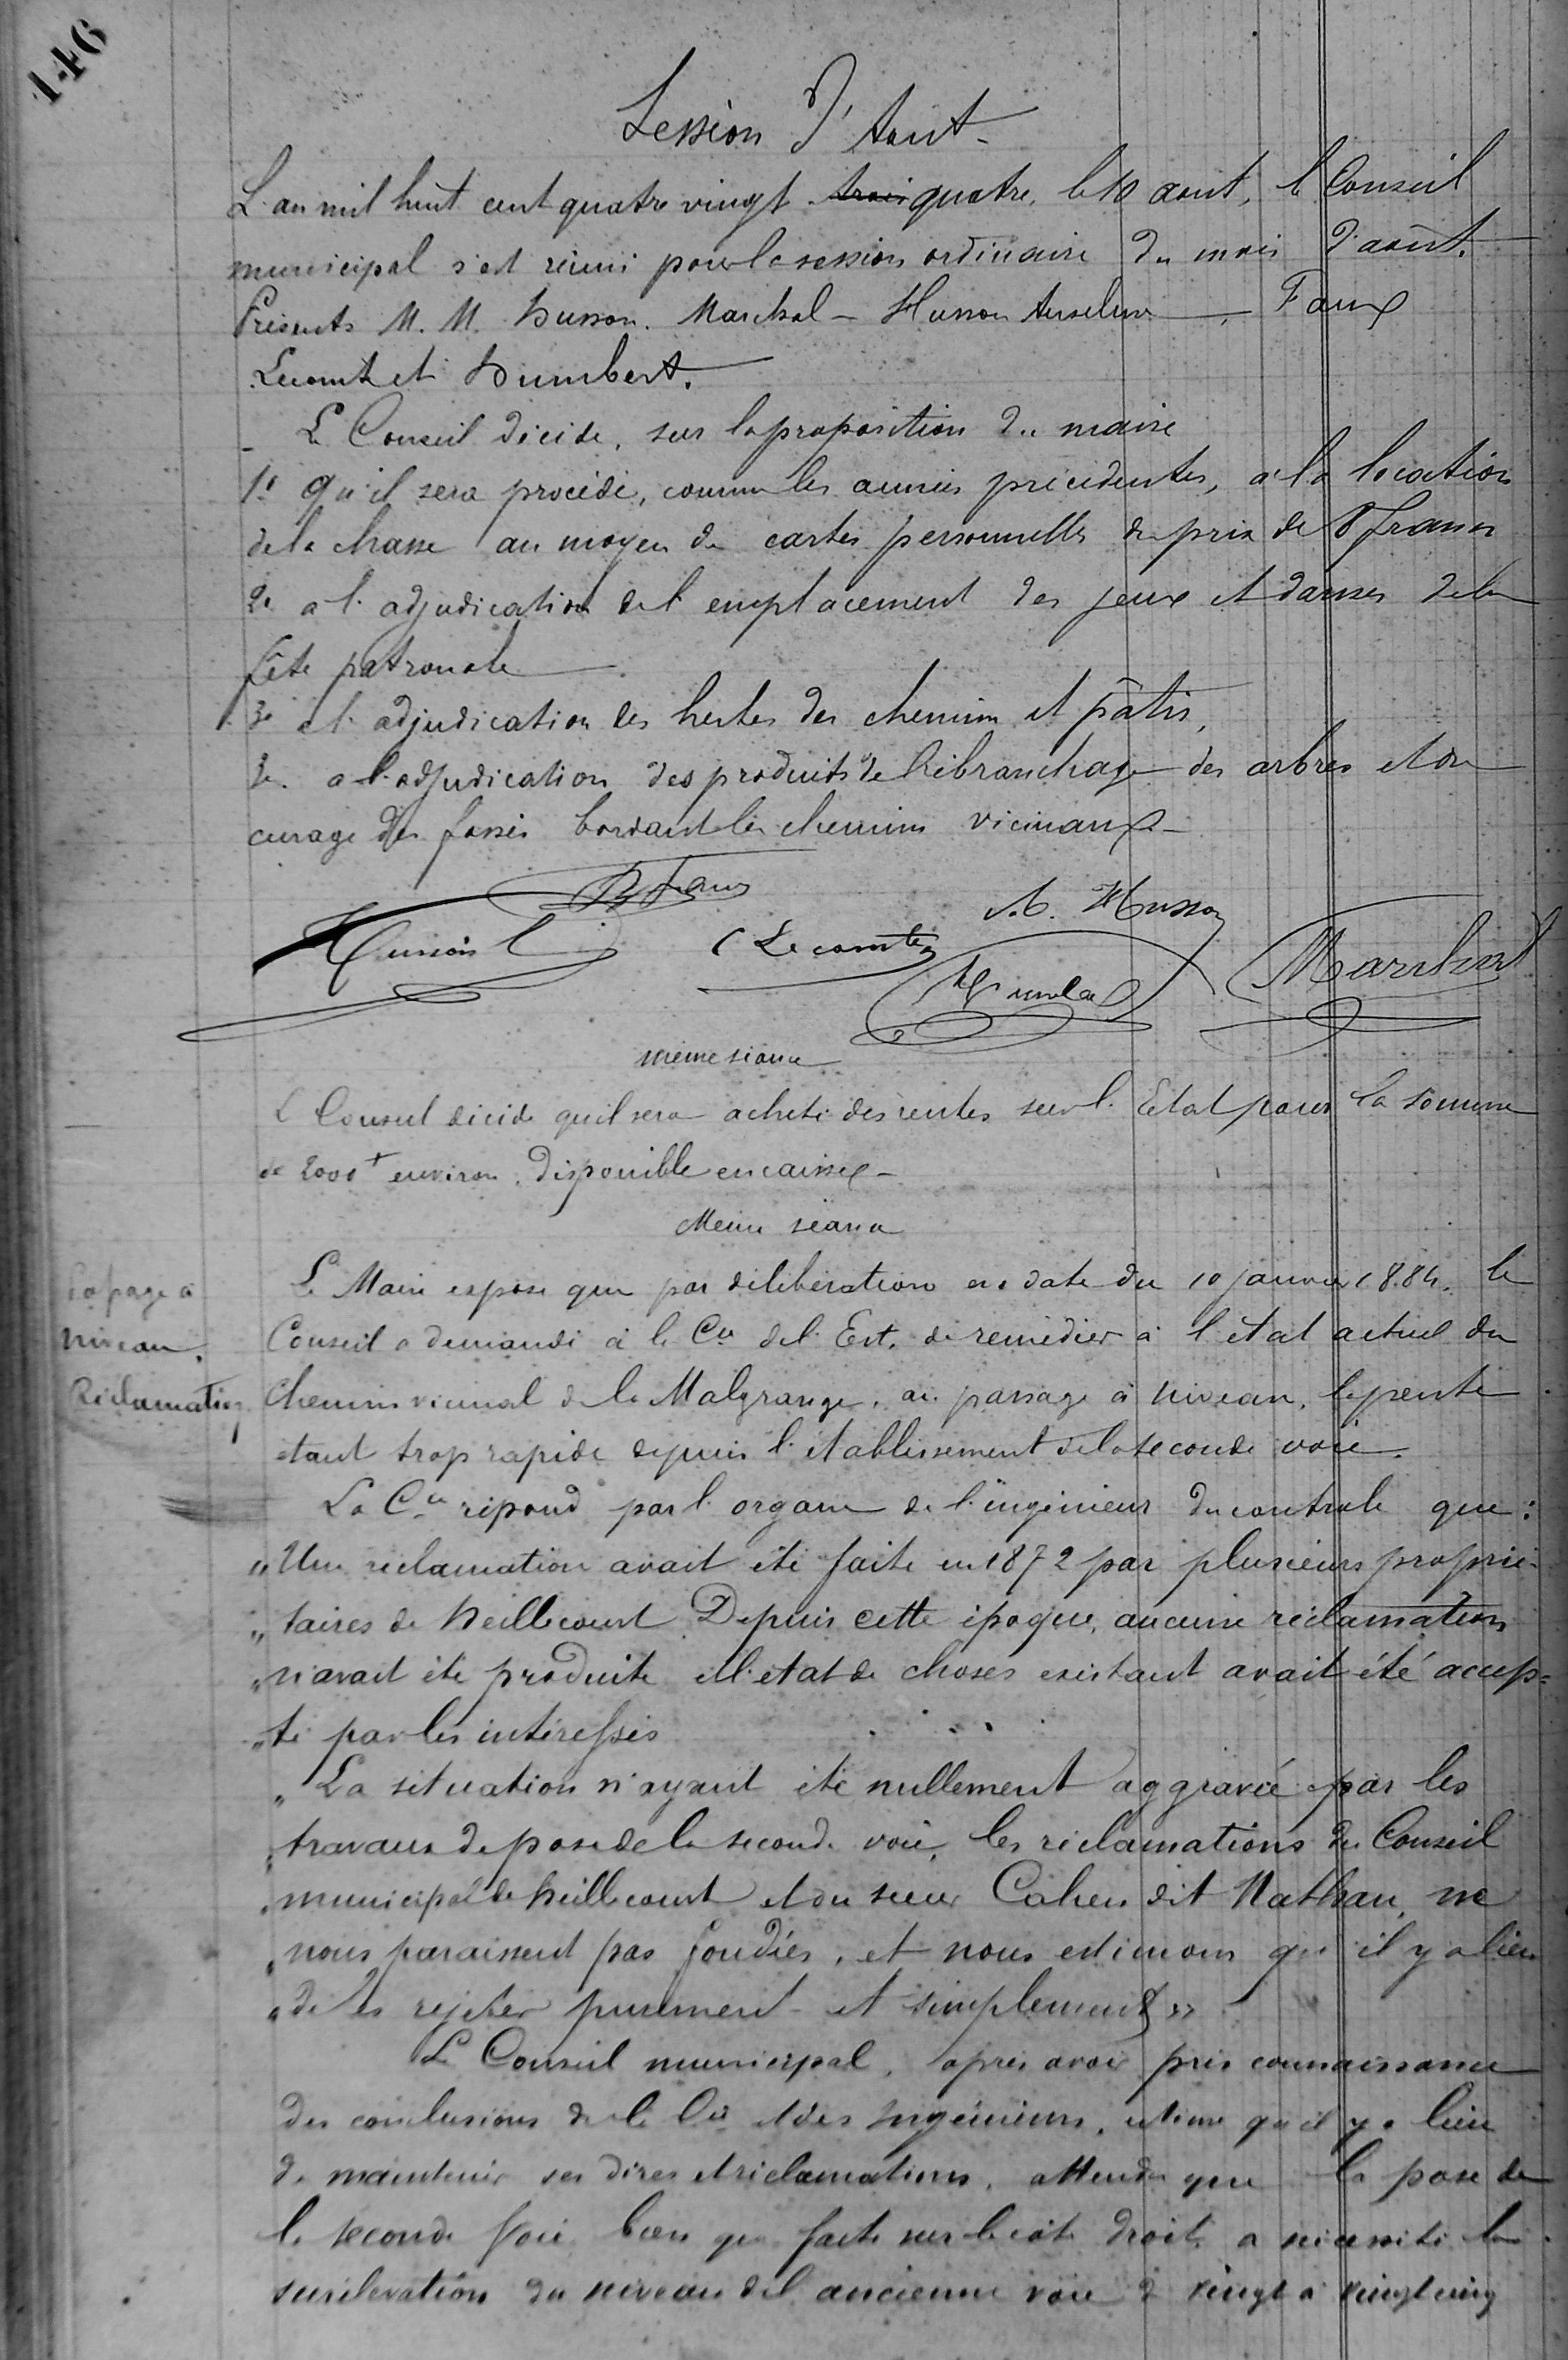 146
Session d'Aout
L'an mil huit cent quatre vingt trois quatre, le 10 aout, le Conseil
municipal s'est réuni pour la session ordinaire du mois d'août.
Présents M. M. Husson. Marchal - Husson Anselme, Faux
Lecomte et Humbert.
Le Conseil décide, sur la proposition du maire
1º Qu'il sera procédé, comme les années précédentes, à la location
de la chasse au moyen de cartes personnelles du prix de 8 francs
2º a l'adjudication de l'emplacement des jeux et danses de la
fête patronale
3º a l'adjudication des herbes des chemins et pâtis,
3e. a l'adjudication des produits de l'ébranchage des arbres et du
curage des fossés bordant les chemins vicinaux
Faux
A. Husson
Husson
Lecomte
Humbert
Marchal
même séance
Le Conseil décide qu'il sera acheté des rentes sur l'Etat pour la somme
de 2000f environ, disponible en caisse
Même séance
Passage à
niveau.
Réclamation
Le Maire expose que par délibération en date du 10 janvier 1884, le
Conseil a demandé à la Cie de l'Est, de remédier à l'état actuel du
Chemin vicinal de la Malgrange, au passage à niveau, la pente
étant trop rapide depuis l'établissement de la seconde voie.
La Cie répond par l'organe de l'ingénieur du controle que :
"Une réclamation avait été faite en 1872 par plusieurs proprié-
"taires de Heillecourt Depuis cette époque, aucune réclamation
"n'avait été produite et l'état de choses existant avait été accep=
"té par les intéressés
"La situation n'ayant été nullement aggravée par les
"travaux de pose de la seconde voie, les réclamations du Conseil
"municipal de Heillecourt et du sieur Cahen dit Nathan, ne
"nous paraissent pas fondées, et nous estimons qu'il y a lieu
"de les rejeter purement et simplement"
Le Conseil municipal, après avoir pris connaissance
des conclusions de la Cie et des Ingénieurs, estime qu'il y a lieu
de maintenir ses dires et réclamations, attendu que la pose de
la seconde voie bien que faite sur le côté droit, a nécessité la
surélévation du niveau de l'ancienne voie de vingt à vingt cinq